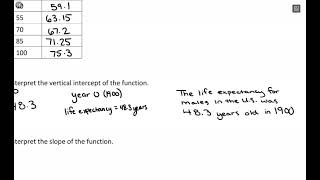 59.1
55 63.15
70 67.2
85 71.25
100 75.3
nterpret the vertical intercept of the function.
year 0 (1900)
48.3 life expectancy = 48.3 years
The life expectancy for
males in the U.S. was
48.3 years old in 1900
nterpret the slope of the function.